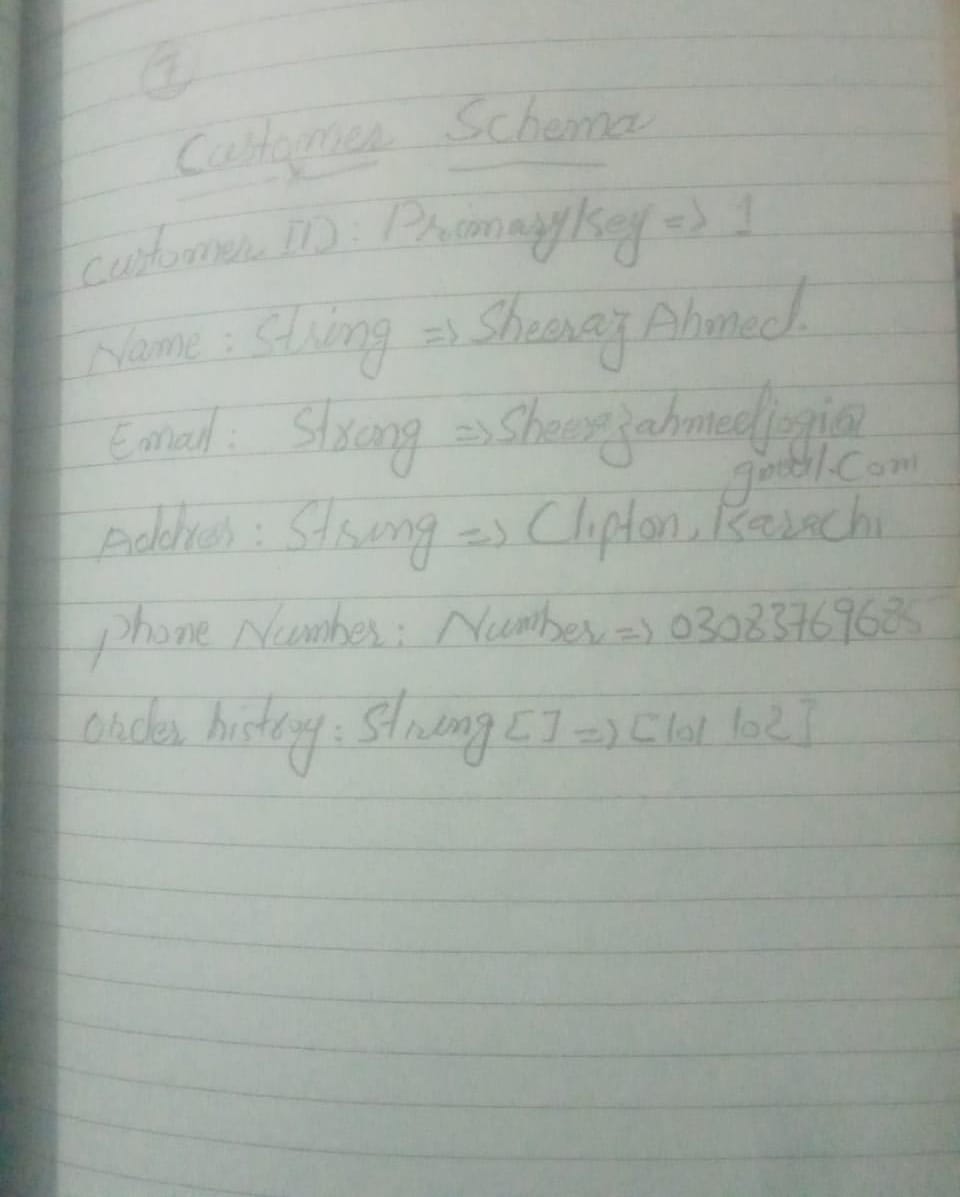 1
Customer Schema
Customer ID: Primary Key => 1
Name: String => Sheeraz Ahmed.
Email: String => Sheerazahmedjogi@
gmail.com
Address: String => Clipton, Karachi
phone Number: Number => 03083769685
Order histroy: String [] => [101 102]